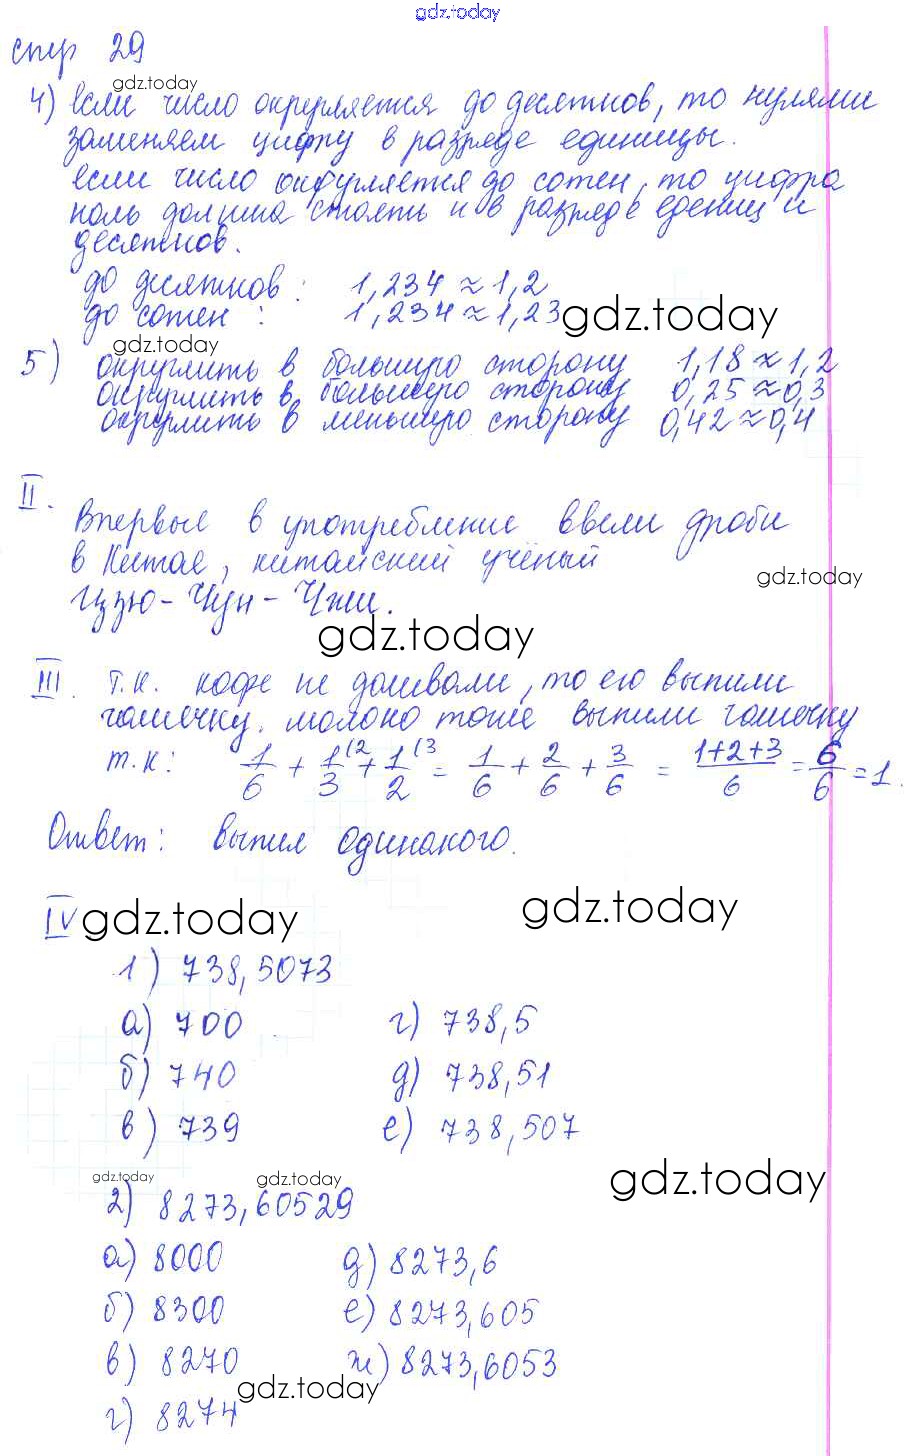 gdz.today
стр 29
gdz.today
4) если число округляется до десятков, то нулями
заменяем цифру в разряде единицы.
если число округляется до сотен, то цифра
ноль должна стоять и в разряде едениц и
десятков.
до десятков: 1,234 ≈ 1,2
до сотен: 1,234 ≈ 1,23 gdz.today
gdz.today
5) округлить в большую сторону 1,18 ≈ 1,2
округлить в большую сторону 0,25 ≈ 0,3
округлить в меньшую сторону 0,42 ≈ 0,4
II. Впервые в употребление ввели дроби
в Китае, китайский учёный
gdz.today
Цзю-Чун-Чжи.
gdz.today
III. т.к. кофе не доливали, то его выпили
чашечку. молоко тоже выпили чашечку
т.к: 1/6 + 1/3 (2 + 1/2 (3 = 1/6 + 2/6 + 3/6 = 1+2+3/6 = 6/6 = 1.
Ответ: выпил одинакого.
IV gdz.today gdz.today
1) 738,5073
а) 700 г) 738,5
б) 740 д) 738,51
в) 739 е) 738,507
gdz.today gdz.today gdz.today
2) 8273,60529
а) 8000 д) 8273,6
б) 8300 е) 8273,605
в) 8270 ж) 8273,6053
gdz.today
г) 8274